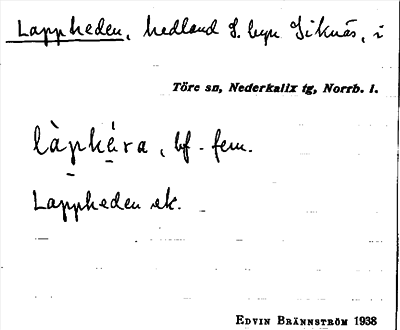 Lappheden, hedland S. byn Siknäs, i
Töre sn, Nederkalix tg, Norrb. l.
làphéra, bf. fem.
Lappheden ek.
EDVIN BRÄNNSTRÖM 1938